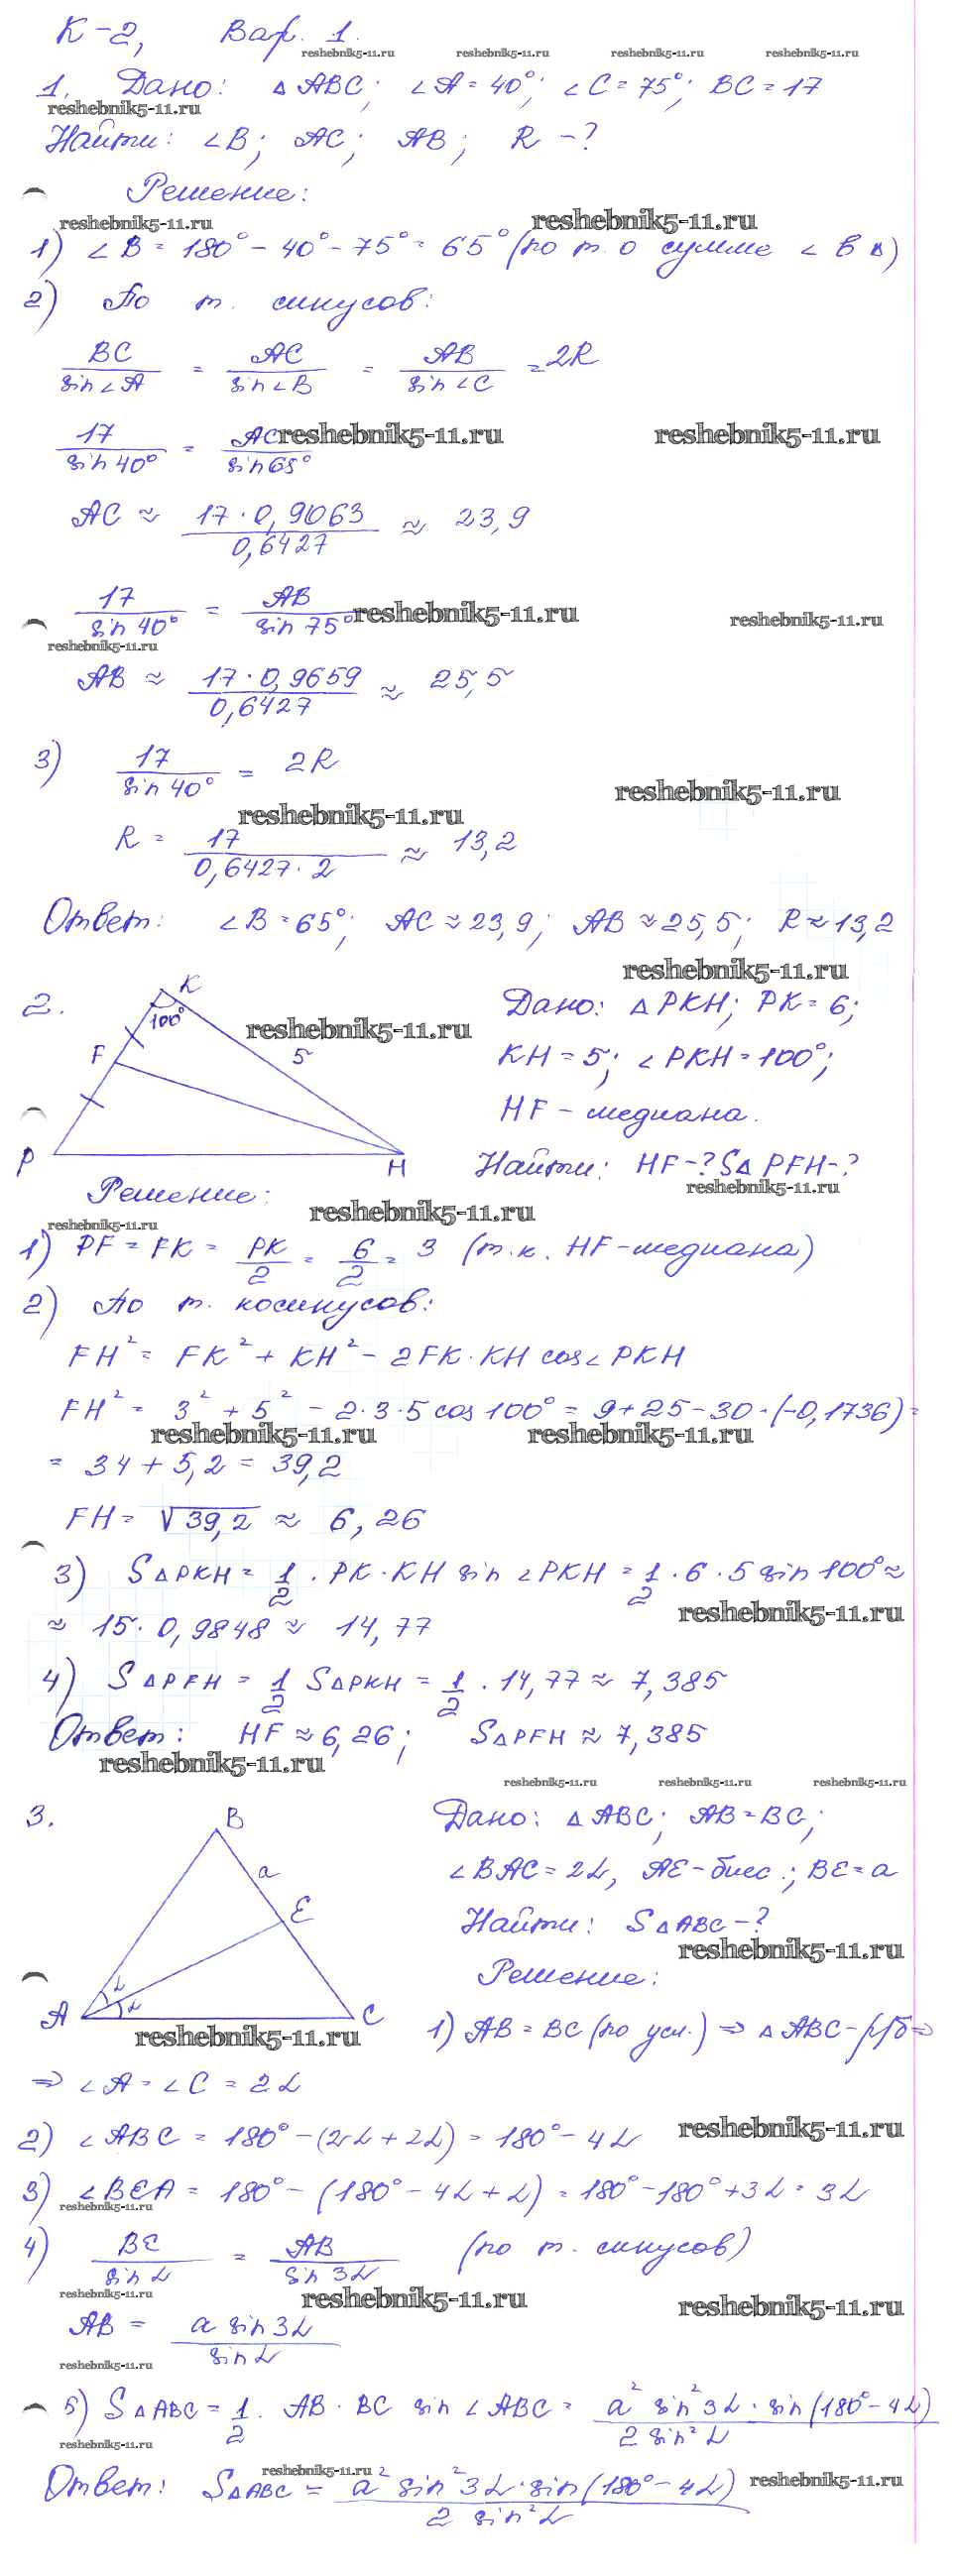 К-2, Вар. 1.
reshebnik5-11.ru reshebnik5-11.ru reshebnik5-11.ru reshebnik5-11.ru
1. Дано: △ABC; ∠A=40°; ∠C=75°; BC=17
reshebnik5-11.ru
Найти: ∠B; AC; AB; R-?
Решение:
reshebnik5-11.ru reshebnik5-11.ru
1) ∠B = 180° - 40° - 75° = 65° (по т. о сумме ∠ в △)
2) По т. синусов:
BC/sin∠A = AC/sin∠B = AB/sin∠C = 2R
17/sin40° = AC/sin65°
reshebnik5-11.ru reshebnik5-11.ru
AC ≈ 17·0,9063/0,6427 ≈ 23,9
17/sin40° = AB/sin75°
reshebnik5-11.ru reshebnik5-11.ru
reshebnik5-11.ru
AB ≈ 17·0,9659/0,6427 ≈ 25,5
3) 17/sin40° = 2R
reshebnik5-11.ru
reshebnik5-11.ru
R = 17/0,6427·2 ≈ 13,2
Ответ: ∠B=65°; AC≈23,9; AB≈25,5; R≈13,2
reshebnik5-11.ru
2.
K
100°
reshebnik5-11.ru
F
5
P
H
Дано: △PKH; PK=6;
KH=5; ∠PKH=100°;
HF-медиана.
Найти: HF-? S△PFH-?
reshebnik5-11.ru
Решение:
reshebnik5-11.ru
reshebnik5-11.ru
1) PF = FK = PK/2 = 6/2 = 3 (т.к. HF-медиана)
2) По т. косинусов:
FH² = FK² + KH² - 2FK·KH cos∠PKH
FH² = 3² + 5² - 2·3·5 cos100° = 9+25-30·(-0,1736) =
reshebnik5-11.ru reshebnik5-11.ru
= 34 + 5,2 = 39,2
FH = √39,2 ≈ 6,26
3) S△PKH = 1/2 · PK·KH sin∠PKH = 1/2 · 6 · 5 sin100° ≈
reshebnik5-11.ru
≈ 15·0,9848 ≈ 14,77
4) S△PFH = 1/2 S△PKH = 1/2 · 14,77 ≈ 7,385
Ответ: HF≈6,26; S△PFH≈7,385
reshebnik5-11.ru
reshebnik5-11.ru reshebnik5-11.ru reshebnik5-11.ru
3.
B
a
E
A
α
α
C
reshebnik5-11.ru
Дано: △ABC; AB=BC;
∠BAC=2α, AE-бисс.; BE=a
Найти: S△ABC-?
reshebnik5-11.ru
Решение:
1) AB=BC (по усл.) ⇒ △ABC-р/б ⇒
⇒ ∠A = ∠C = 2α
2) ∠ABC = 180° - (2α+2α) = 180° - 4α
reshebnik5-11.ru
3) ∠BEA = 180° - (180° - 4α + α) = 180° - 180° + 3α = 3α
reshebnik5-11.ru
4) BE/sinα = AB/sin3α (по т. синусов)
reshebnik5-11.ru reshebnik5-11.ru reshebnik5-11.ru
AB = a sin3α/sinα
reshebnik5-11.ru
5) S△ABC = 1/2 · AB·BC sin∠ABC = a² sin²3α·sin(180°-4α)/2 sin²α
reshebnik5-11.ru
reshebnik5-11.ru reshebnik5-11.ru
Ответ: S△ABC = a² sin²3α·sin(180°-4α)/2 sin²α